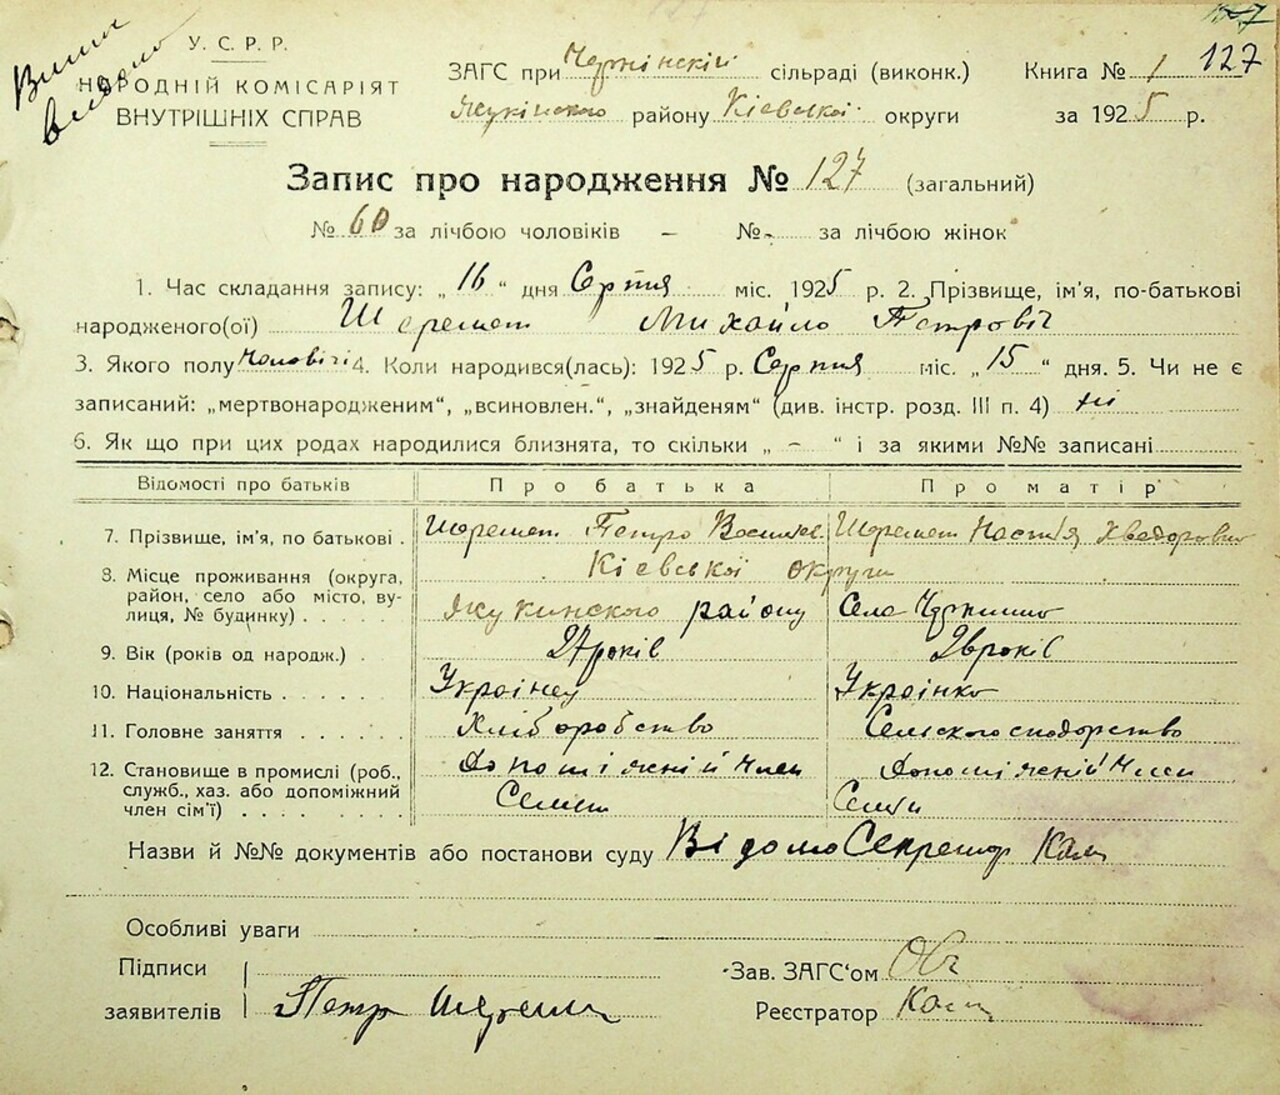 127
127
У. С. Р. Р.
НАРОДНІЙ КОМІСАРІЯТ
ВНУТРІШНІХ СПРАВ
ЗАГС при Чернінскій сільраді (виконк.) Книга № 1
району Кіевської округи за 1925 р.
Запис про народження № 127 (загальний)
№ 60 за лічбою чоловіків – № - за лічбою жінок
1. Час складання запису: „16“ дня Серпня міс. 1925 р. 2. Прізвище, ім'я, по-батькові
народженого(ої) Шеремет Михайло Петровіч
3. Якого полу чоловічі 4. Коли народився(лась): 1925 р. Серпня міс. „15“ дня. 5. Чи не є
записаний: „мертвонародженим“, „всиновлен.“, „знайденям“ (див. інстр. розд. III п. 4) ні
6. Як що при цих родах народилися близнята, то скільки „ – “ і за якими №№ записані
Відомості про батьків Про батька Про матір
7. Прізвище, ім'я, по батькові . Шеремет Петро Васильев. Шеремет Настя Хведоровно
8. Місце проживання (округа, район, село або місто, вулиця, № будинку) . . . . . Кіевської округи
району Село
9. Вік (років од народж.) . 27 років років
10. Національність . . . . . . Українец Українко
11. Головне заняття . . . . . . Хліборобство Селскогосподорство
12. Становище в промислі (роб., Допоміжній Член Допоміжній Член
служб., хаз. або допоміжний Семьи Семьи
член сім'ї) . . . . . . . .
Назви й №№ документів або постанови суду Відомо Секретар
Особливі уваги
Підписи Зав. ЗАГС'ом
заявителів Петр Шеремет Реєстратор